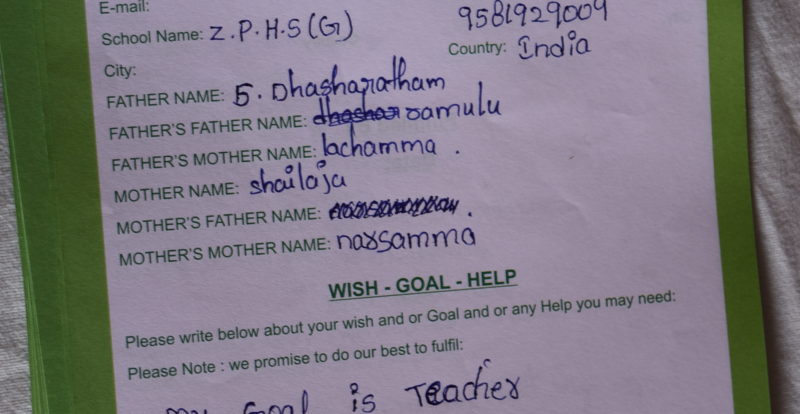 E-mail:
9581929009
School Name: Z.P.H.S(G)
Country: India
City:
FATHER NAME: S. Dhasharatham
FATHER'S FATHER NAME: ramulu
FATHER'S MOTHER NAME: lachamma.
MOTHER NAME: shailaja
MOTHER'S FATHER NAME:
MOTHER'S MOTHER NAME: narsamma
WISH - GOAL - HELP
Please write below about your wish and or Goal and or any Help you may need:
Please Note : we promise to do our best to fulfil:
my Goal is Teacher